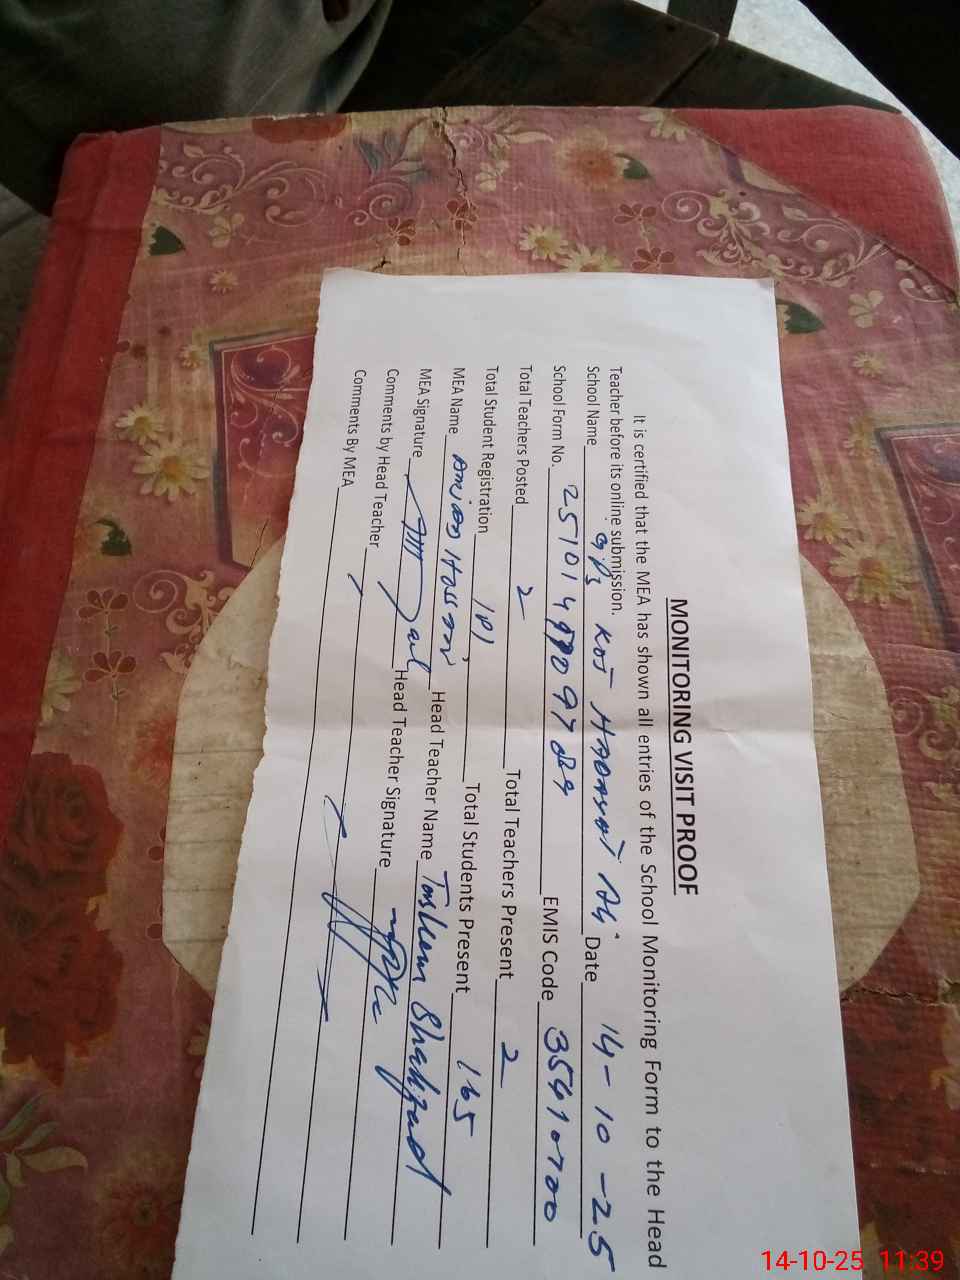 MONITORING VISIT PROOF
It is certified that the MEA has shown all entries of the School Monitoring Form to the Head
Teacher before its online submission.
School Name GPS Kot Hazrat Ali Date 14-10-25
School Form No. EMIS Code
Total Teachers Posted 2 Total Teachers Present 2
Total Student Registration 181 Total Students Present 165
MEA Name Hassan Head Teacher Name Tasleem Shahzad
MEA Signature Head Teacher Signature
Comments by Head Teacher
Comments By MEA
14-10-25 11:39